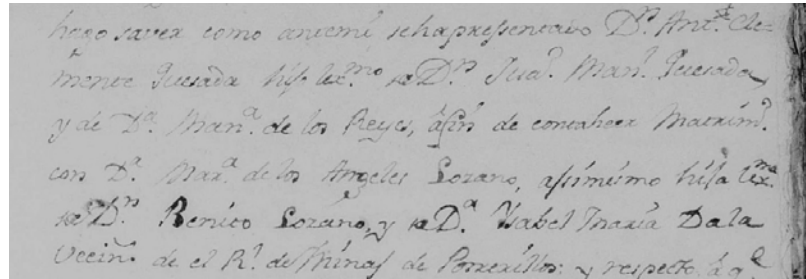 hago saver como antemi se ha presentado Dn. Anto. Cle=
mente Quesada hijo lexmo de Dn Juan. Man. Quesada,
y de Da. Mana. de los Reyes, afin de contraher Matrimo.
con Da. Mara. de los Angeles Lozano, assimismo hija lexma
de Dn. Benito Lozano, y de Da. Ysabel Maria Dala
Vecino de el Rl. de Minas de Potrerillos: y respecto, à qe